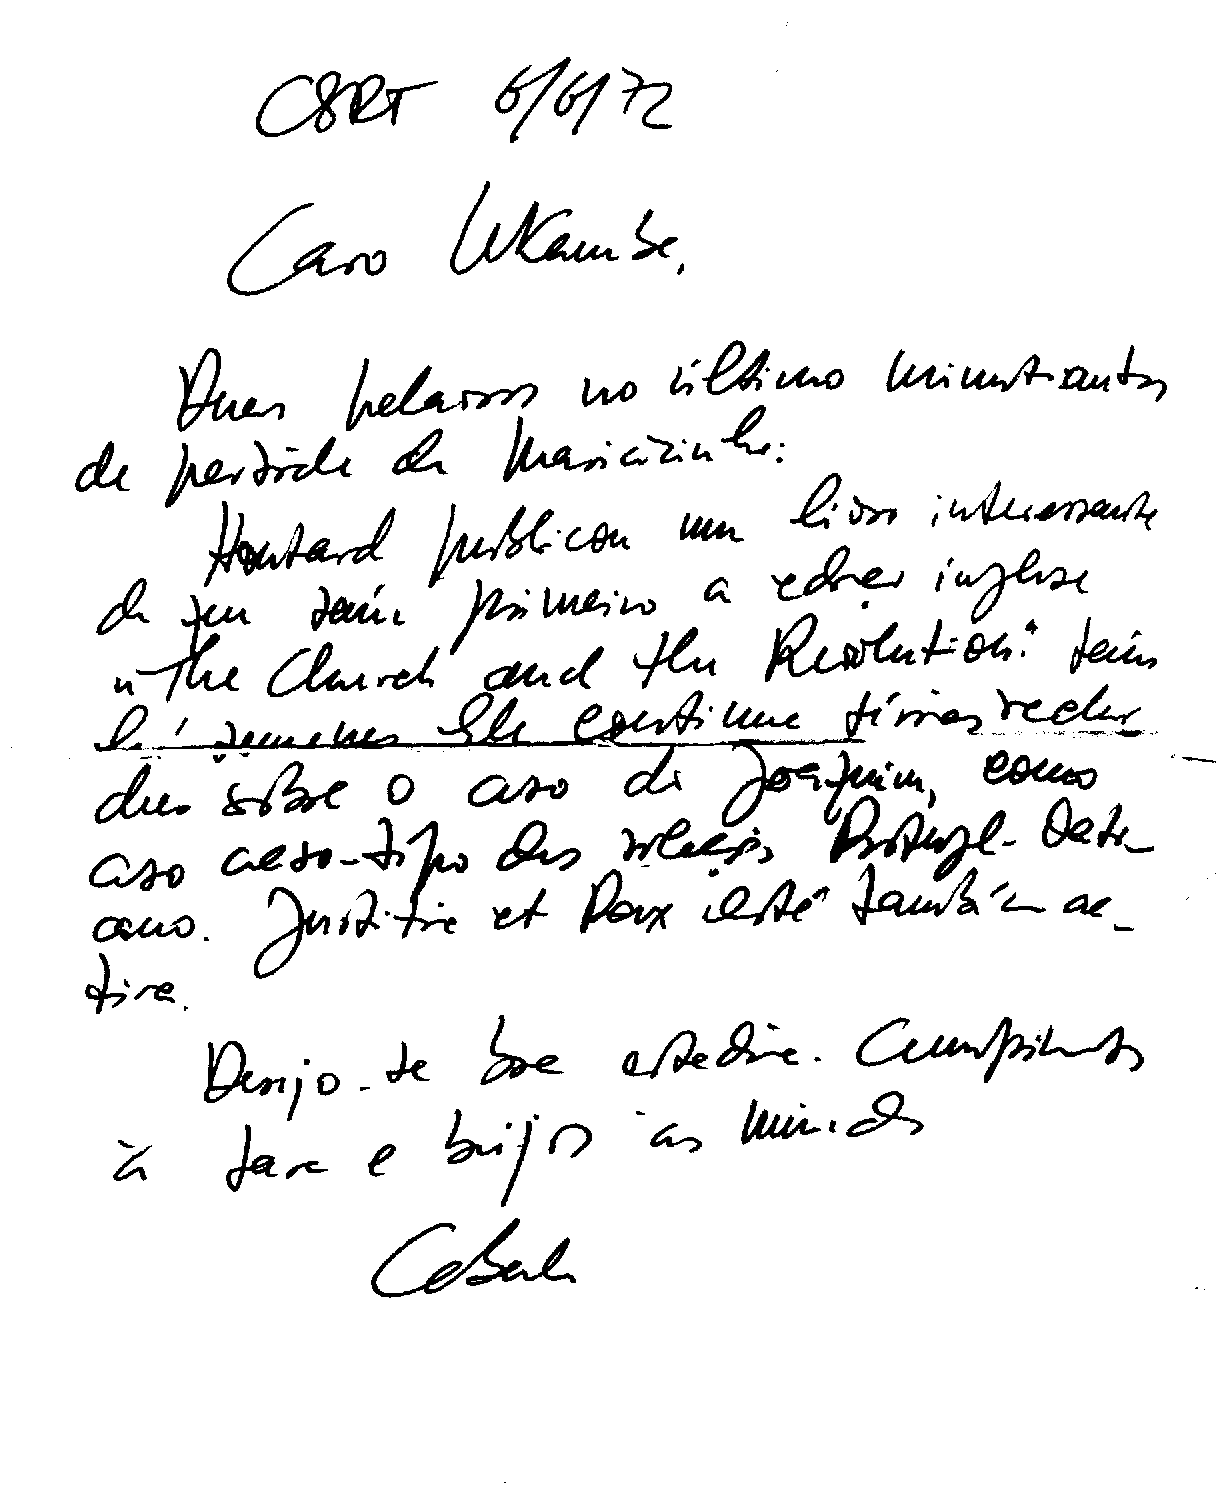 CBRT 6/6/72
Caro Ukambe,
Duas palavras no último minuto antes
da partida da Mariazinha:
Houtard publicou um livro interessante
de que saiu primeiro a edição inglesa
"The Church and the Revolution": saiu
há semanas Ele continua
sôbre o caso do Joaquim, como
caso caso-tipo das relações Portugal-Vati-
cano. Justitia et Pax está também ac-
tiva.
Desejo-te boa estadia. Cumprimentos
à Sara e beijos às miúdas